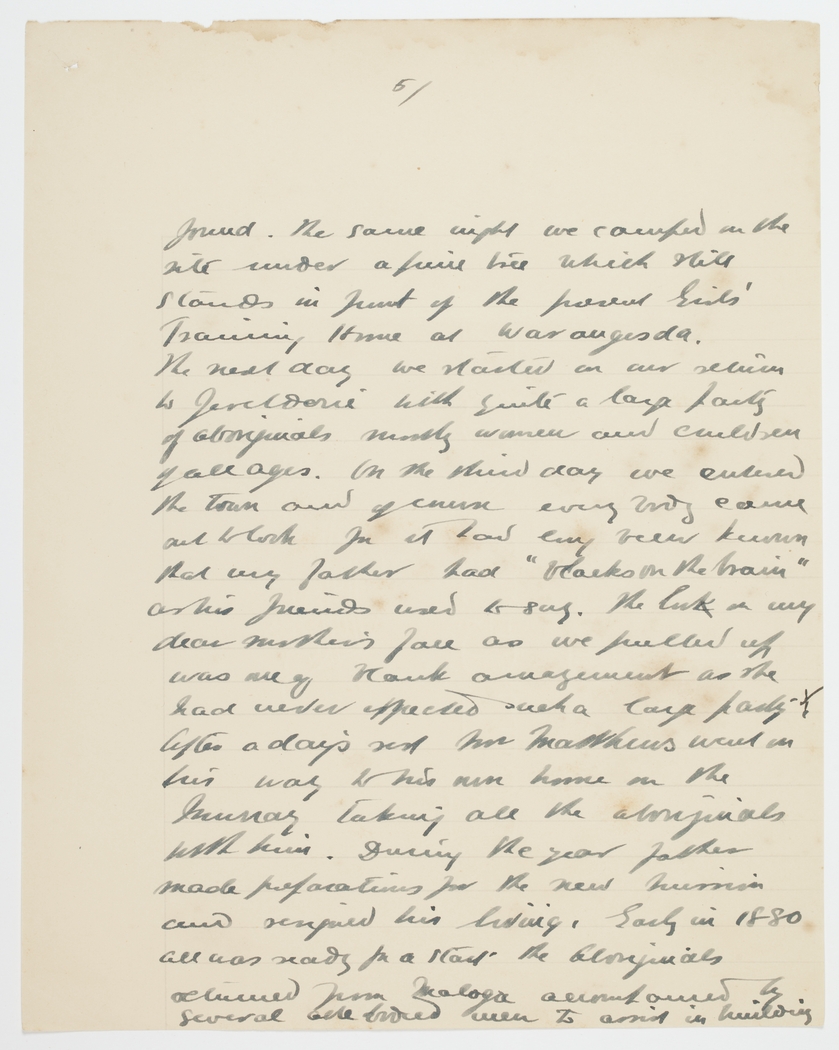 5/
found. The same night we camped on the
site under a pine tree which still
stands in front of the present Girls'
Training Home at Warangesda.
The next day we started on our return
to Jerilderie with quite a large party
of aboriginals mostly women and children
of all ages. On the third day we entered
the town and of course every body came
out to look for it had long been known
that my father had "blacks on the brain"
as his friends used to say. The look on my
dear mother's face as we pulled up
was one of blank amazement as she
had never expected such a large party
After a day's rest Mr Matthews went on
his way to his own home on the
Murray taking all the aboriginals
with him. During the year father
made preparations for the new mission
and resigned his living. Early in 1880
all was ready for a start. The Aboriginals
returned from Maloga accompanied by
several able bodied men to assist in building